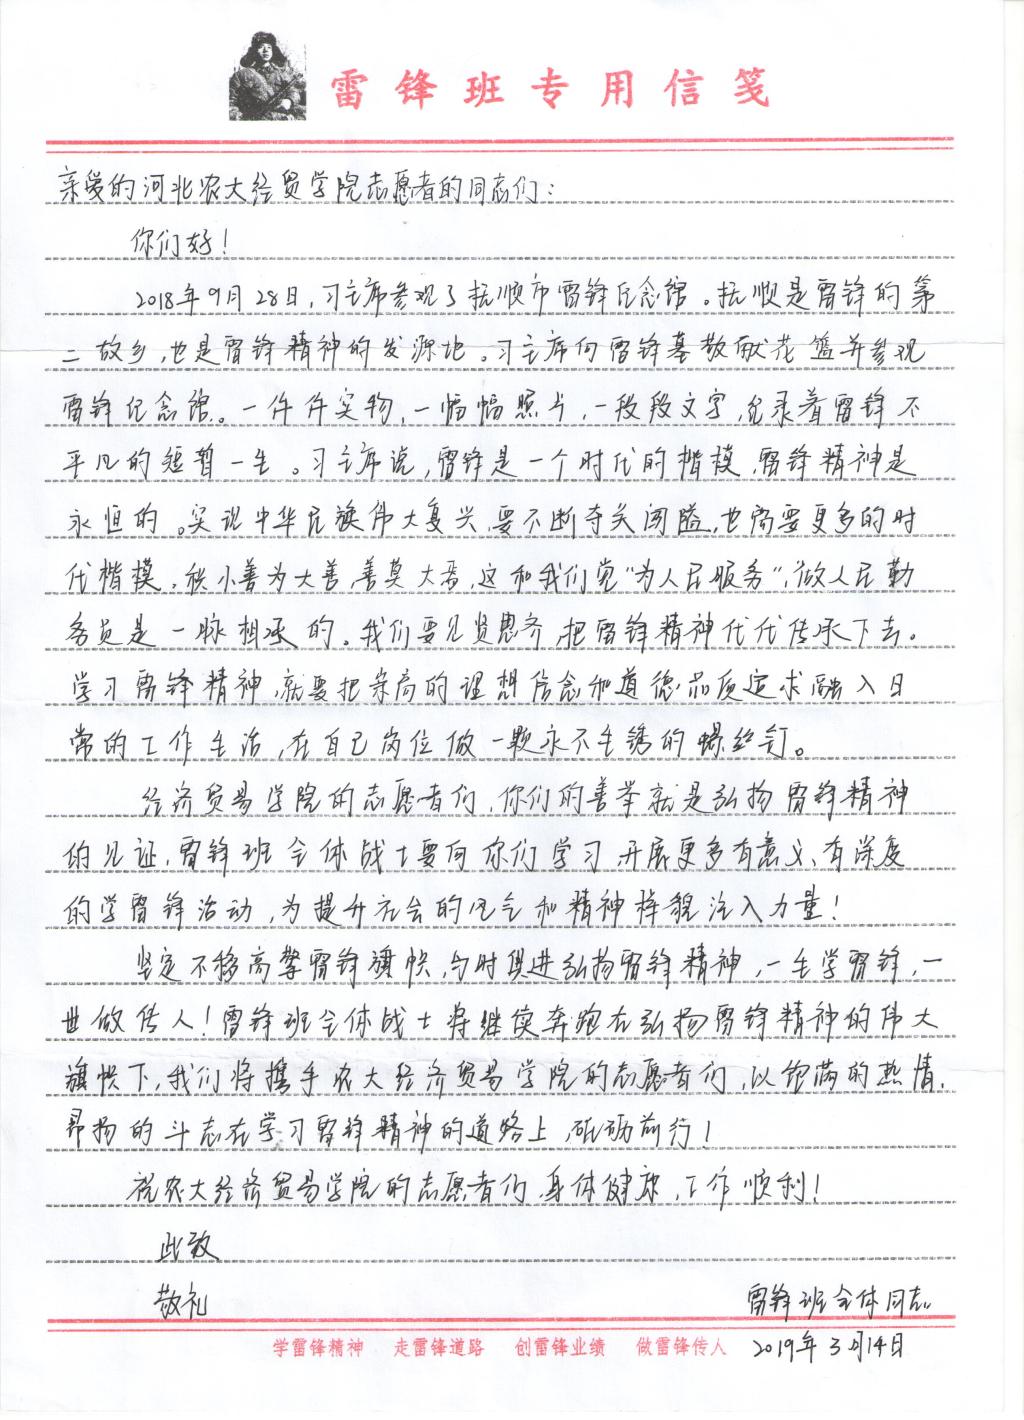 雷锋班专用信笺
亲爱的河北农大经贸学院志愿者的同志们：
你们好！
2018年9月28日，习主席参观了抚顺市雷锋纪念馆。抚顺是雷锋的第
二故乡，也是雷锋精神的发源地。习主席向雷锋墓敬献花篮并参观
雷锋纪念馆。一件件实物，一幅幅照片，一段段文字，记录着雷锋不
平凡的短暂一生。习主席说，雷锋是一个时代的楷模，雷锋精神是
永恒的。实现中华民族伟大复兴，要不断夺关闯隘，也需要更多的时
代楷模。积小善为大善，善莫大焉，这和我们党“为人民服务”，做人民勤
务员是一脉相承的。我们要见贤思齐，把雷锋精神代代传承下去。
学习雷锋精神，就要把崇高的理想信念和道德品质追求融入日
常的工作生活，在自己岗位做一颗永不生锈的螺丝钉。
经济贸易学院的志愿者们，你们的善举就是弘扬雷锋精神
的见证，雷锋班全体战士要向你们学习，开展更多有意义、有深度
的学雷锋活动，为提升社会的风气和精神样貌注入力量！
坚定不移高擎雷锋旗帜，与时俱进弘扬雷锋精神，一生学雷锋，一
世做传人！雷锋班全体战士将继续奔跑在弘扬雷锋精神的伟大
旗帜下，我们将携手农大经济贸易学院的志愿者们，以饱满的热情，
昂扬的斗志在学习雷锋精神的道路上，砥砺前行！
祝农大经济贸易学院的志愿者们，身体健康，工作顺利！
此致
敬礼
雷锋班全体同志
2019年3月14日
学雷锋精神 走雷锋道路 创雷锋业绩 做雷锋传人